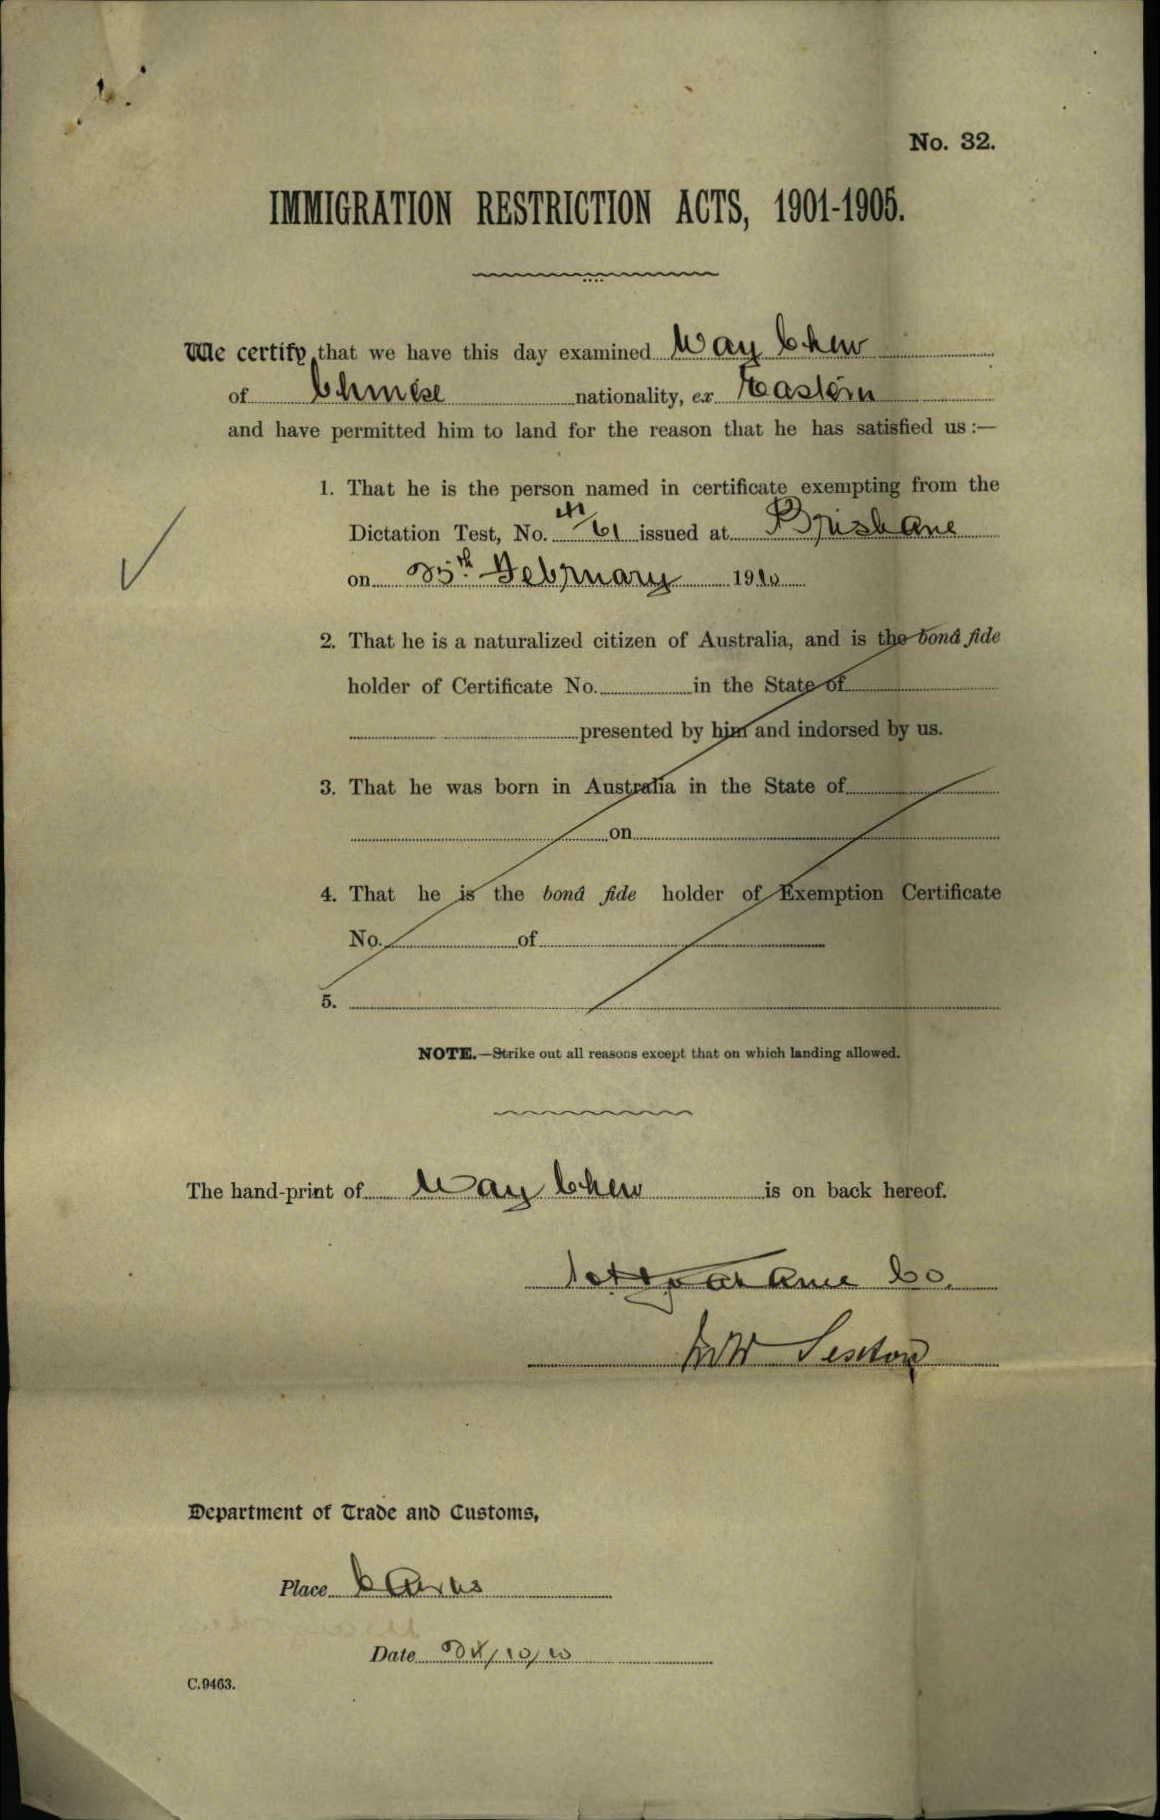 No. 32.
IMMIGRATION RESTRICTION ACTS, 1901-1905.
We certify that we have this day examined Way Chew
of Chinese nationality, ex Eastern
and have permitted him to land for the reason that he has satisfied us :—
1. That he is the person named in certificate exempting from the
Dictation Test, No. /61 issued at Brisbane
on 25th February 1910
2. That he is a naturalized citizen of Australia, and is the bonâ fide
holder of Certificate No. in the State of
presented by him and indorsed by us.
3. That he was born in Australia in the State of
on
4. That he is the bonâ fide holder of Exemption Certificate
No. of
5.
NOTE.—Strike out all reasons except that on which landing allowed.
The hand-print of Way Chew is on back hereof.
Co.
Sexton
Department of Trade and Customs,
Place Cairns
Date /10/10
C.9463.